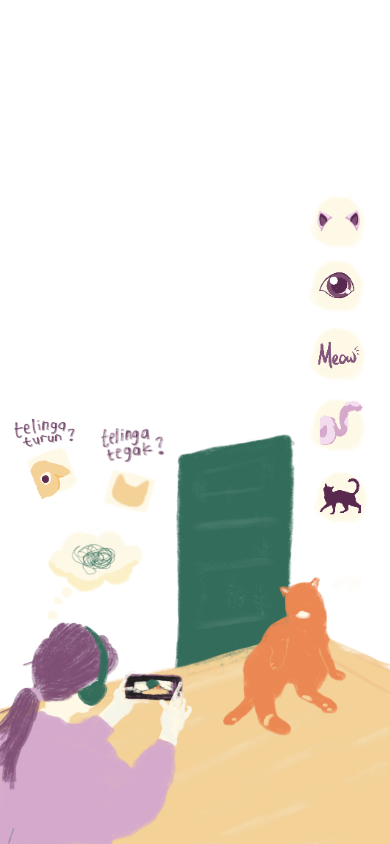 Meow
telinga
turun?
telinga
tegak?